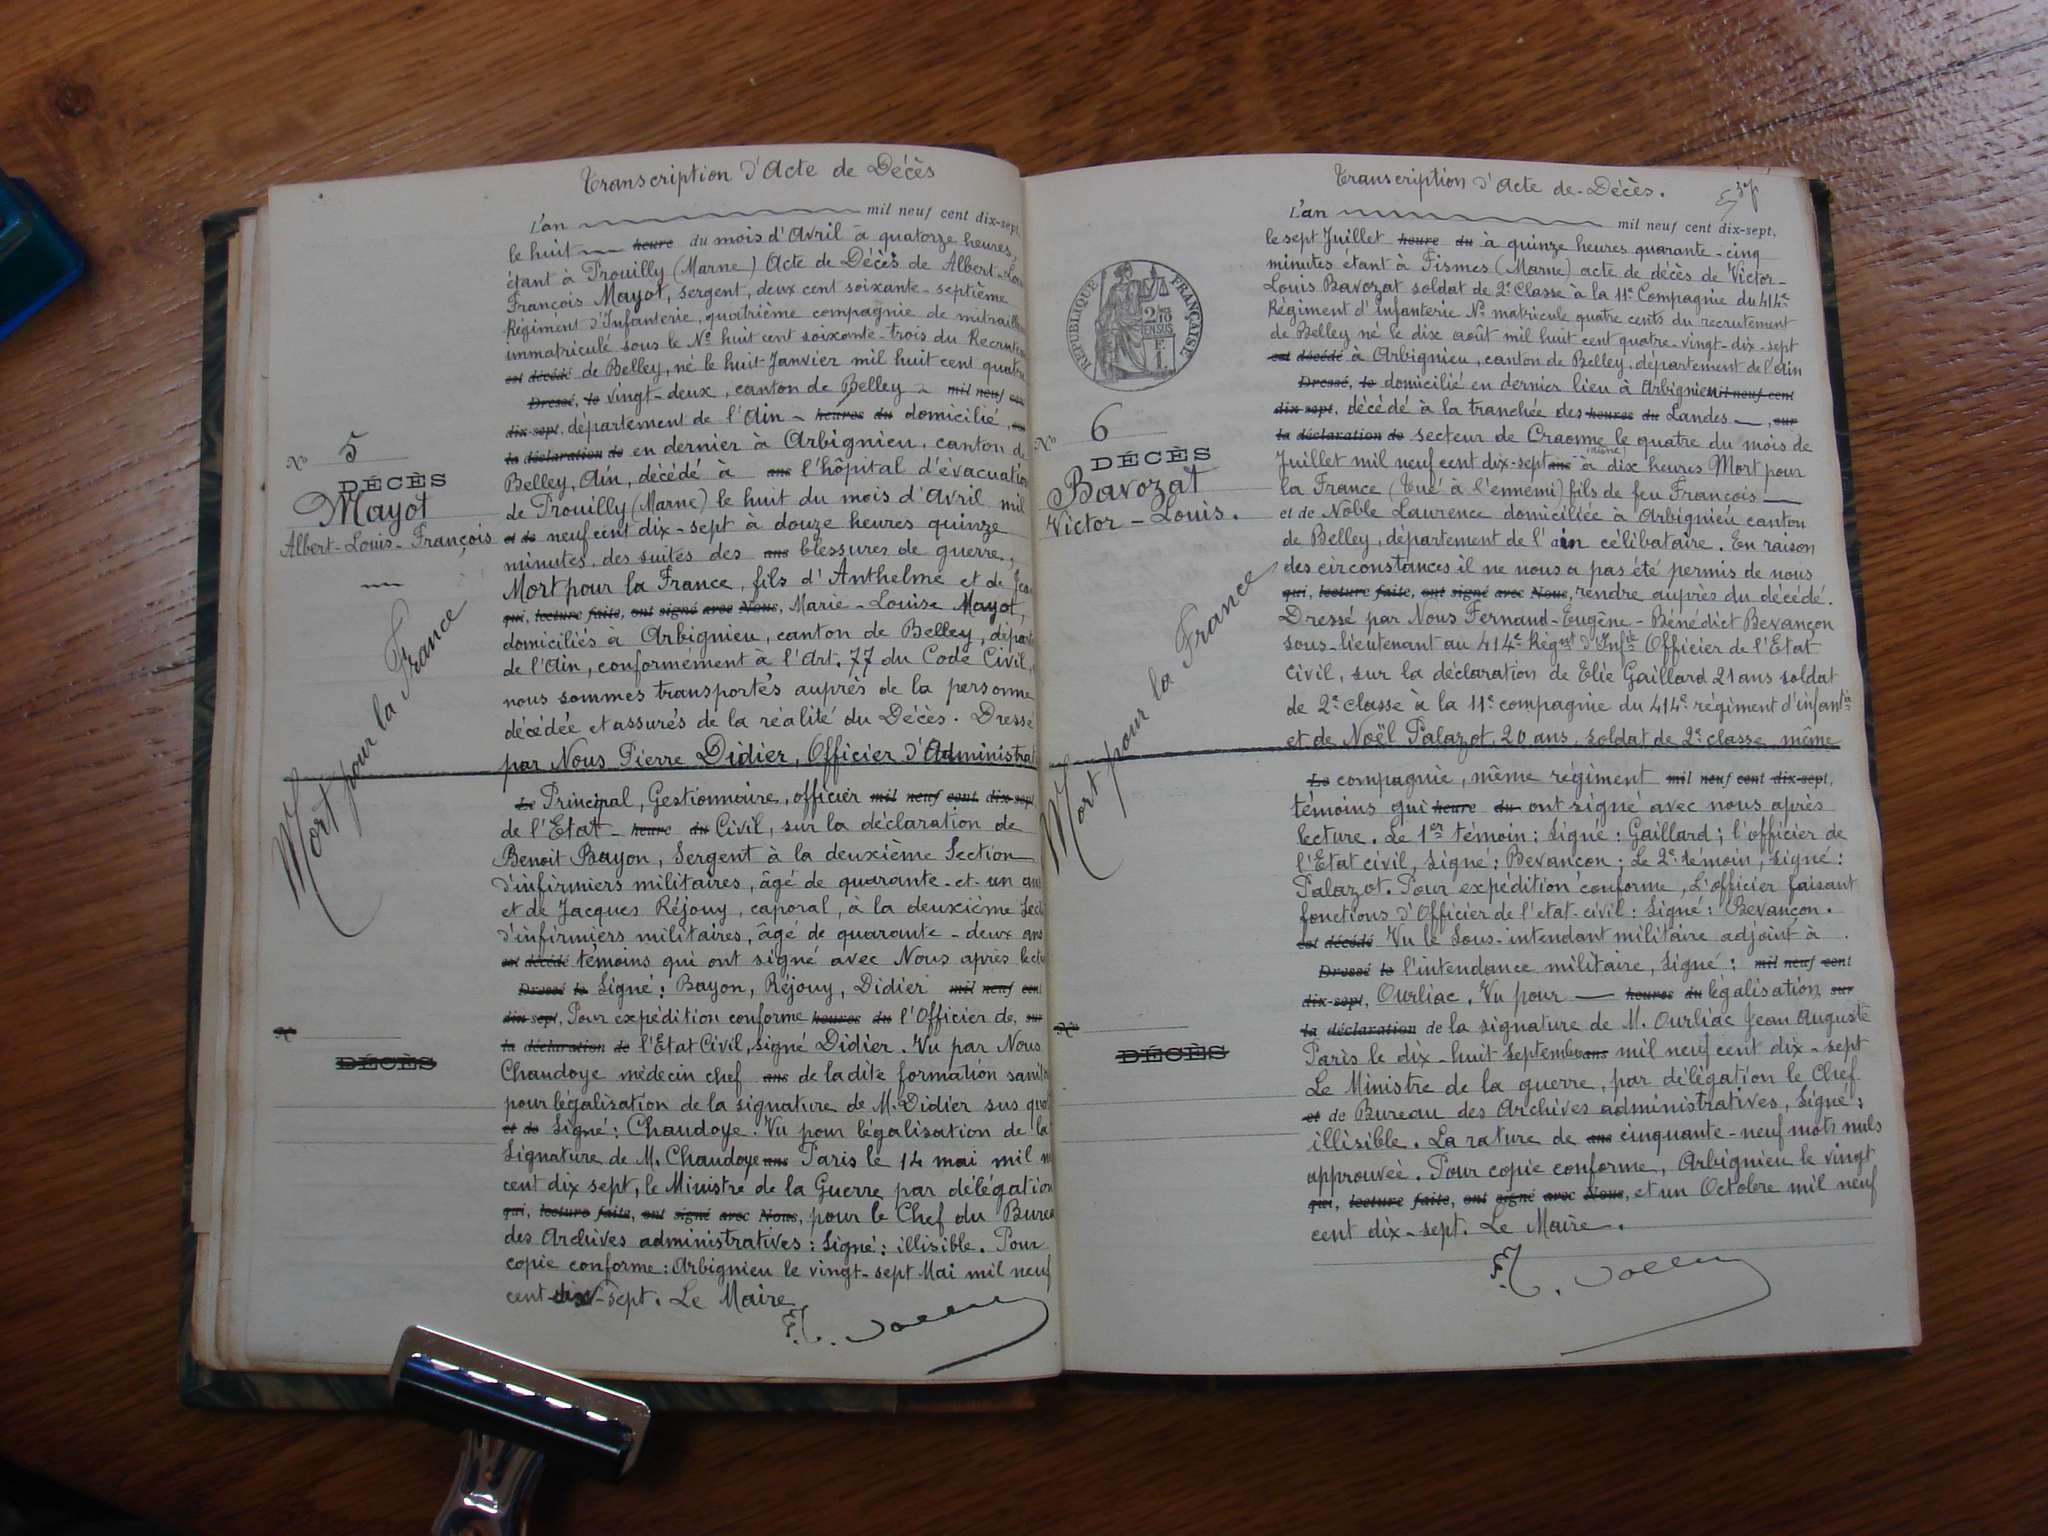 Transcription d'Acte de Décès
L'an mil neuf cent dix-sept,
le huit heure du mois d'Avril à quatorze heures,
étant à Prouilly (Marne) Acte de Décès de Albert-Lou
François Mayot, sergent, deux cent soixante-septième
Régiment d'Infanterie, quatrième compagnie de mitraill
immatriculé sous le No huit cent soixante-trois du Recrutem
est décédé de Belley, né le huit Janvier mil huit cent quatre
Dressé, le vingt-deux, canton de Belley mil neuf cent
dix-sept, département de l'Ain heures du domicilié, sur
la déclaration de en dernier à Arbignieu, canton de
Belley, Ain, décédé à ans l'hôpital d'évacuation
de Prouilly (Marne) le huit du mois d'Avril mil
et de neuf cent dix-sept à douze heures quinze
minutes, des suites des ans blessures de guerre,
Mort pour la France, fils d'Anthelme et de Jea
qui, lecture faite, ont signé avec Nous, Marie-Louise Mayot,
domiciliés à Arbignieu, canton de Belley, départ
de l'Ain, conformément à l'Art. 77 du Code Civil,
nous sommes transportés auprès de la personne
décédée et assurés de la réalité du Décès. Dressé
par Nous Pierre Didier, Officier d'Administrat
Le Principal, Gestionnaire, officier mil neuf cent dix-sept
de l'Etat heure du Civil, sur la déclaration de
Benoit Bayon, Sergent à la deuxième Section
d'infirmiers militaires, âgé de quarante-et-un ans
et de Jacques Réjouy, caporal, à la deuxième Secti
d'infirmiers militaires, âgé de quarante-deux ans
est décédé témoins qui ont signé avec Nous après lectu
Dressé le Signé: Bayon, Réjouy, Didier mil neuf cent
dix-sept, Pour expédition conforme heures du l'Officier de, sur
la déclaration de l'Etat Civil, signé Didier. Vu par Nous
Chaudoye médecin chef ans de la dite formation sanita
pour légalisation de la signature de M. Didier sus qual
et de Signé: Chaudoye. Vu pour légalisation de la
Signature de M. Chaudoye ans Paris le 14 mai mil n
cent dix sept, le Ministre de la Guerre par délégation
qui, lecture faite, ont signé avec Nous, pour le Chef du Burea
des Archives administratives: Signé: illisible. Pour
copie conforme: Arbignieu le vingt-sept Mai mil neuf
cent dix-sept. Le Maire
No 5
DÉCÈS
Mayot
Albert-Louis-François
Mort pour la France
No
DÉCÈS
Transcription d'Acte de Décès.
L'an mil neuf cent dix-sept,
le sept Juillet heure du à quinze heures quarante-cinq
minutes étant à Fismes (Marne) acte de décès de Victor-
Louis Bavozat soldat de 2e Classe à la 11e Compagnie du 414e
Régiment d'infanterie No matricule quatre cents du recrutement
de Belley né le dix août mil huit cent quatre-vingt-dix-sept
est décédé à Arbignieu, canton de Belley, département de l'Ain
Dressé, le domicilié en dernier lieu à Arbignieu mil neuf cent
dix-sept, décédé à la tranchée des heures du Landes, sur
la déclaration de secteur de Craonne le quatre du mois de
(Aisne)
Juillet mil neuf cent dix-sept ans à dix heures Mort pour
la France (Tué à l'ennemi) fils de feu François
et de Noble Laurence domiciliée à Arbignieu canton
de Belley, département de l'ain célibataire. En raison
des circonstances il ne nous a pas été permis de nous
qui, lecture faite, ont signé avec Nous, rendre auprès du décédé.
Dressé par Nous Fernand-Eugène-Bénédict Bevançon
sous-lieutenant au 414e Régnt d'Infie Officier de l'Etat
Civil, sur la déclaration de Elie Gaillard 21 ans soldat
de 2e classe à la 11e compagnie du 414e régiment d'infantie
et de Noël Palazot, 20 ans, soldat de 2e classe, même
Le compagnie, même régiment mil neuf cent dix-sept,
témoins qui heure du ont signé avec nous après
lecture. Le 1er témoin: Signé: Gaillard; l'officier de
l'Etat civil, signé: Bevançon; Le 2e témoin, signé:
Palazot. Pour expédition conforme, L'officier faisant
fonctions d'Officier de l'etat-civil: Signé: Bevançon.
est décédé Vu le Sous-intendant militaire adjoint à
Dressé le l'intendance militaire, Signé: mil neuf cent
dix-sept, Ourliac. Vu pour heures du légalisation sur
la déclaration de la signature de M. Ourliac Jean Auguste
Paris le dix-huit Septembre ans mil neuf cent dix-sept
Le Ministre de la guerre, par délégation le Chef
et de Bureau des Archives administratives, Signé:
illisible. La rature de ans cinquante-neuf mots nuls
approuvée. Pour copie conforme, Arbignieu le vingt
qui, lecture faite, ont signé avec Nous, et un Octobre mil neuf
cent dix-sept. Le Maire.
RÉPUBLIQUE FRANÇAISE
2/10 EN SUS
No 6
DÉCÈS
Bavozat
Victor-Louis.
Mort pour la France
No
DÉCÈS